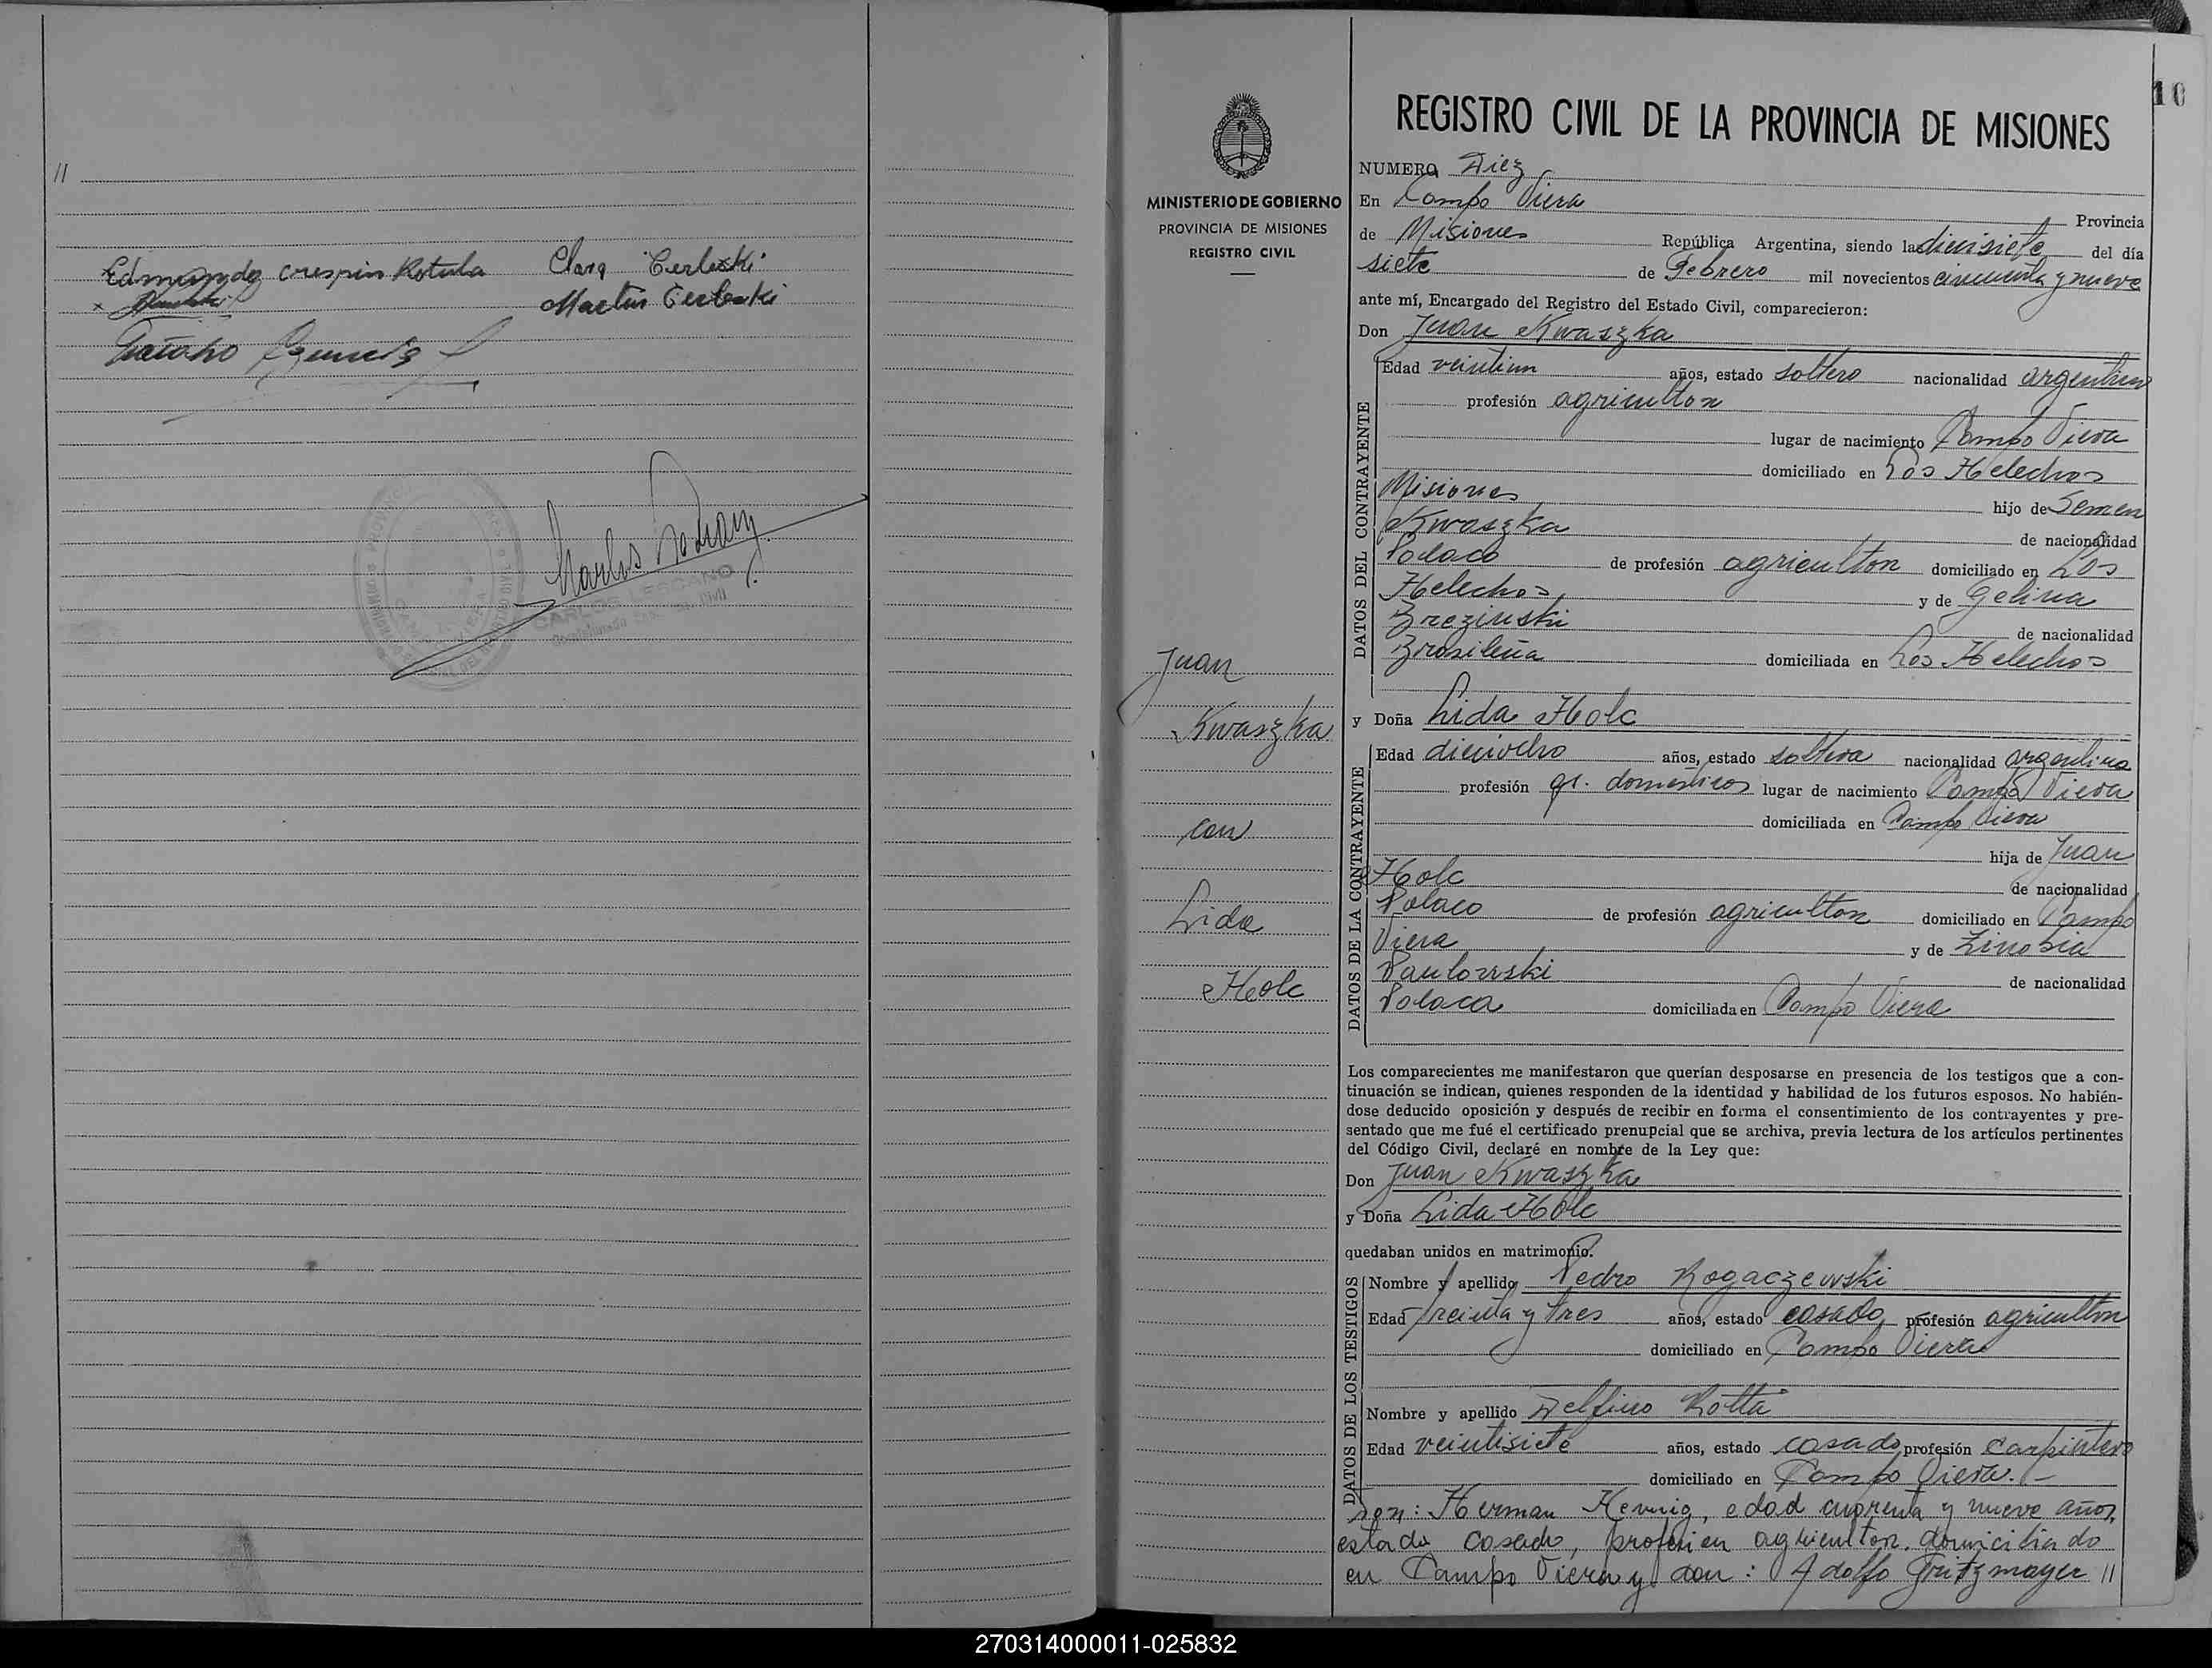 11
Edmundo crespin Kotula Clara Cerleski
Martin Cerleski
CARLOS LESCANO
10
REGISTRO CIVIL DE LA PROVINCIA DE MISIONES
MINISTERIO DE GOBIERNO
PROVINCIA DE MISIONES
REGISTRO CIVIL
Juan
Kwaszka
con
Lida
Holc
NUMERO Diez
En Campo Viera Provincia
de Misiones República Argentina, siendo las diecisiete del día
siete de Febrero mil novecientos cincuenta y nueve
ante mí, Encargado del Registro del Estado Civil, comparecieron:
Don Juan Kwaszka
DATOS DEL CONTRAYENTE
Edad veintiun años, estado soltero nacionalidad argentino
profesión agricultor
lugar de nacimiento Campo Viera
domiciliado en Los Helechos
Misiones hijo de Semen
Kwaszka de nacionalidad
Polaco de profesión agricultor domiciliado en Los
Helechos, y de Gelina
Brezinski de nacionalidad
Brasileña domiciliada en Los Helechos
y Doña Lida Holc
DATOS DE LA CONTRAYENTE
Edad dieciocho años, estado soltera nacionalidad argentina
profesión q. domesticos lugar de nacimiento Campo Viera
domiciliada en Campo Viera
hija de Juan
Holc de nacionalidad
Polaco de profesión agricultor domiciliado en Campo
Viera y de Zinobia
Paulowski de nacionalidad
Polaca domiciliada en Campo Viera
Los comparecientes me manifestaron que querían desposarse en presencia de los testigos que a con-
tinuación se indican, quienes responden de la identidad y habilidad de los futuros esposos. No habién-
dose deducido oposición y después de recibir en forma el consentimiento de los contrayentes y pre-
sentado que me fué el certificado prenupcial que se archiva, previa lectura de los artículos pertinentes
del Código Civil, declaré en nombre de la Ley que:
Don Juan Kwaszka
y Doña Lida Holc
quedaban unidos en matrimonio.
DATOS DE LOS TESTIGOS
Nombre y apellido Pedro Rogaczewski
Edad treinta y tres años, estado casado profesión agricultor
domiciliado en Campo Viera
Nombre y apellido Delfino Rotta
Edad veintisiete años, estado casado profesión carpintero
domiciliado en Campo Viera.-
Son: Herman Hennig, edad cuarenta y nueve años,
estado casado, profesion agricultor, domiciliado
en Campo Viera y don: Adolfo Fritzmayer 11
270314000011-025832